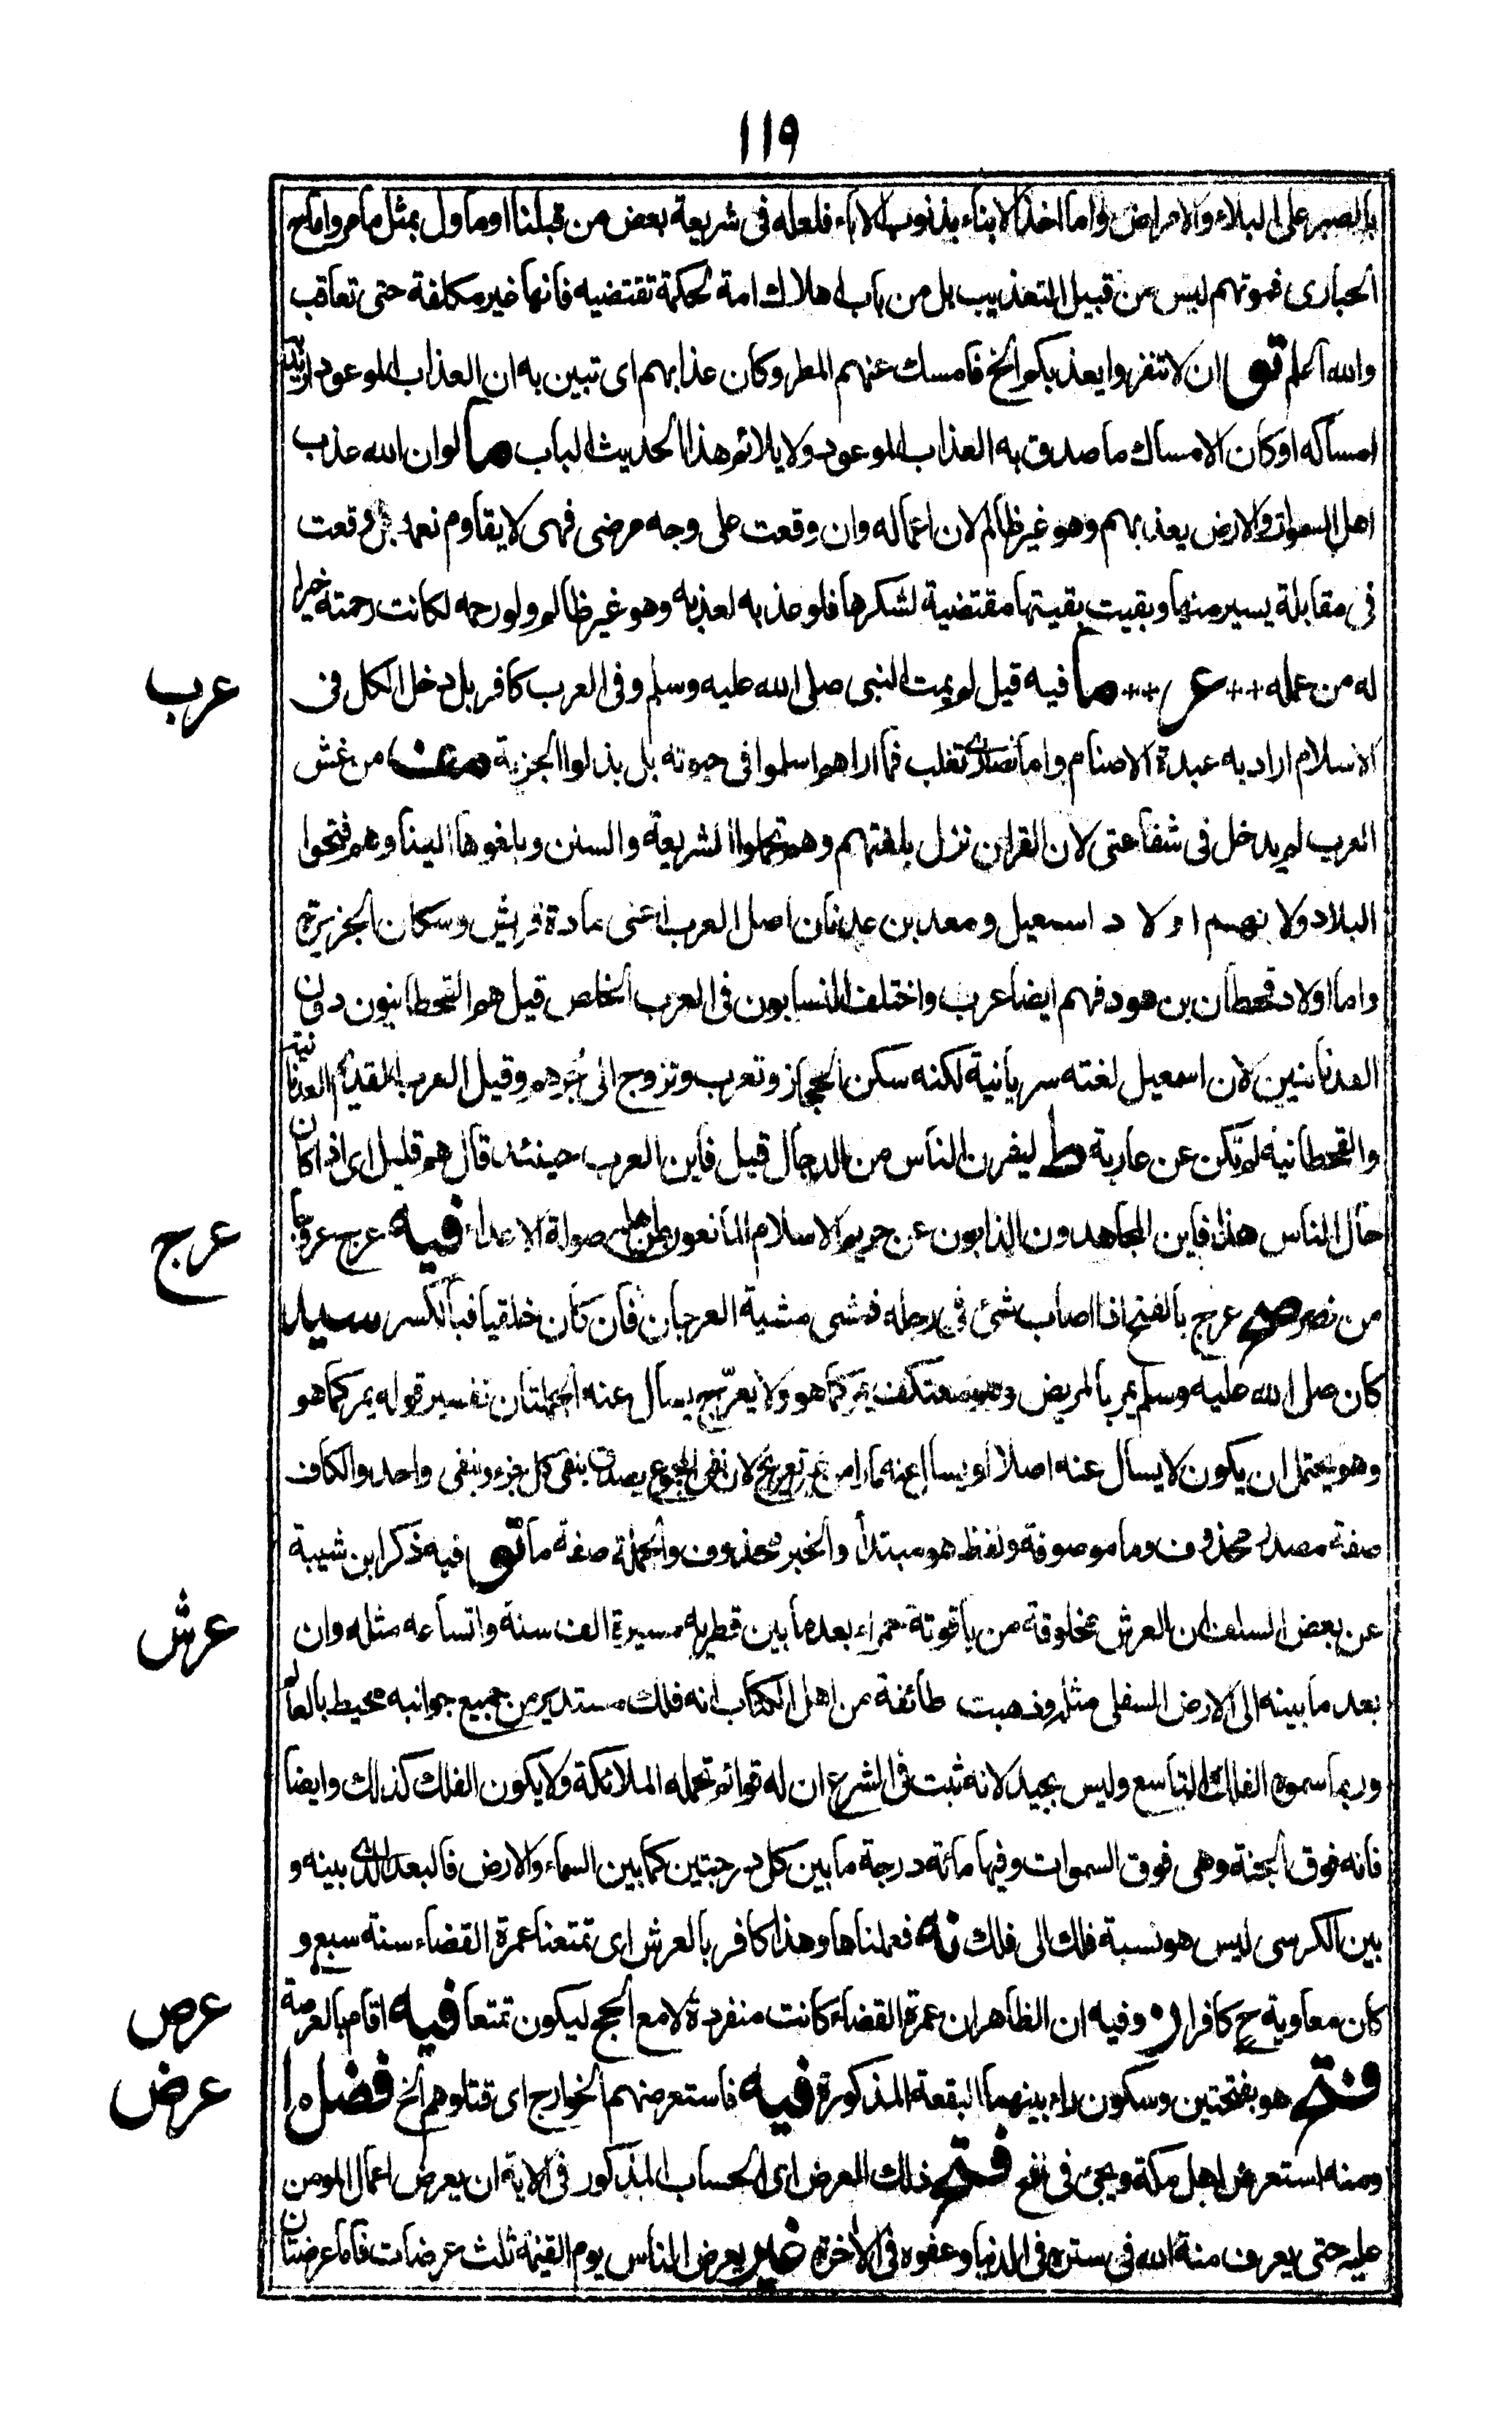 ١١٩
بالصبر على البلاء والامراض واما اخذ الابناء بذنوب الاباء فلعله فى شريعة بعض من قبلنا او ماول بمثل ما مر واما
الحبارى فموتهم ليس من قبيل التعذيب بل من باب اهلاك امة لحكمة تقتضيه فانها غير مكلفة حتى تعاقب
والله اعلم تو ان لا تنفروا يعذبكم الخ فامسك عنهم المطر وكان عذابهم اى تبين به ان العذاب الموعود اريد به
امساكه او كان الامساك ما صدق به العذاب الموعود ولا يلائم هذا الحديث الباب ما لو ان الله عذب
اهل السموات والارض يعذبهم وهو غير ظالم لان اعماله وان وقعت على وجه مرضى فهى لا يقاوم نعمه بل وقعت
فى مقابلة يسير منها وبقيت بقيتها مقتضية لشكرها فلو عذبه لعذبه وهو غير ظالم ولو رحمه لكانت رحمته خيرا
له من عمله ++ عر ++ ما فيه قيل لم يمت النبى صلى الله عليه وسلم وفى العرب كافر بل دخل الكل فى
عرب
الاسلام اراد به عبدة الاصنام واما نصارى تغلب فما اراهم اسلموا فى حيوته بل بذلوا الجزية من غش
العرب لم يدخل فى شفاعتى لان القران نزل بلغتهم وهم تحملوا الشريعة والسنن وبلغوها الينا وهم فتحوا
البلاد ولانهم اولاد اسمعيل ومعد بن عدنان اصل العرب اعنى مادة قريش وسكان الجزيرة
واما اولاد قحطان بن هود فهم ايضا عرب واختلف النسابون فى العرب الخلص قيل هم القحطانيون دون
العدنانيين لان اسمعيل لغته سريانية لكنه سكن الحجاز وتعرب وتزوج الى جرهم وقيل العرب القديم العدنانية
والقحطانية لم تكن عن عاربة ط ليفرن الناس من الدجال قيل فاين العرب حينئذ قال هم قليل اى اذا كان
حال الناس هذا فاين المجاهدون الذابون عن حريم الاسلام المانعون عن اهله صولة الاعداء فيه عرج عروجا
عرج
من نصر صح عرج بالفتح اذا اصاب شئ فى رجله فمشى مشية العرجان فان كان خلقيا فبالكسر سيد
كان صلى الله عليه وسلم يمر بالمريض وهو معتكف يمر كما هو ولا يعرّج يسأل عنه الجملتان تفسير قوله يمر كما هو
وهو يحتمل ان يكون لا يسأل عنه اصلا او يسأل عنه مارا من غير تعريج لان نفى المجموع يصدق بنفى كل جزء وبنفى واحد والكاف
صفة مصدر محذوف وما موصوفة ولفظ هو مبتدأ والخبر محذوف والجملة صفة ما تو فيه ذكر ابن شيبة
عن بعض السلف ان العرش مخلوقة من ياقوتة حمراء بعد ما بين قطريه مسيرة الف سنة واتساعه مثله وان
عرش
بعد ما بينه الى الارض السفلى مثله وذهبت طائفة من اهل الكتاب انه فلك مستدير من جميع جوانبه محيط بالعالم
وربما سموه الفلك التاسع وليس بجيد لانه ثبت فى الشرع ان له قوائم تحمله الملائكة ولا يكون الفلك كذلك وايضا
فانه فوق الجنة وهى فوق السموات وفيها مائة درجة ما بين كل درجتين كما بين السماء والارض فالبعد الذى بينه و
بين الكرسى ليس هو نسبة فلك الى فلك نه فعملناها وهذا كافر بالعرش اى تمتعنا عمرة القضاء سنة سبع و
كان معاوية ح كافرا ن وفيه ان الظاهر ان عمرة القضاء كانت منفردة لا مع الحج ليكون تمتعا فيه اقام بالعرصة
عرص
فتح هو بفتحتين وسكون راء بينهما البقعة المذكورة فيه فاستعرضهم الخوارج اى قتلوهم الخ فضل ا
عرض
ومنه استعرض اهل مكة ويجئ فى نفح فتح ذلك العرض اى الحساب المذكور فى الاية ان يعرض اعمال المومن
عليه حتى يعرف منة الله فى ستره فى الدنيا وعفوه فى الاخرة غير يعرض الناس يوم القيمة ثلث عرضات فاما عرضتان